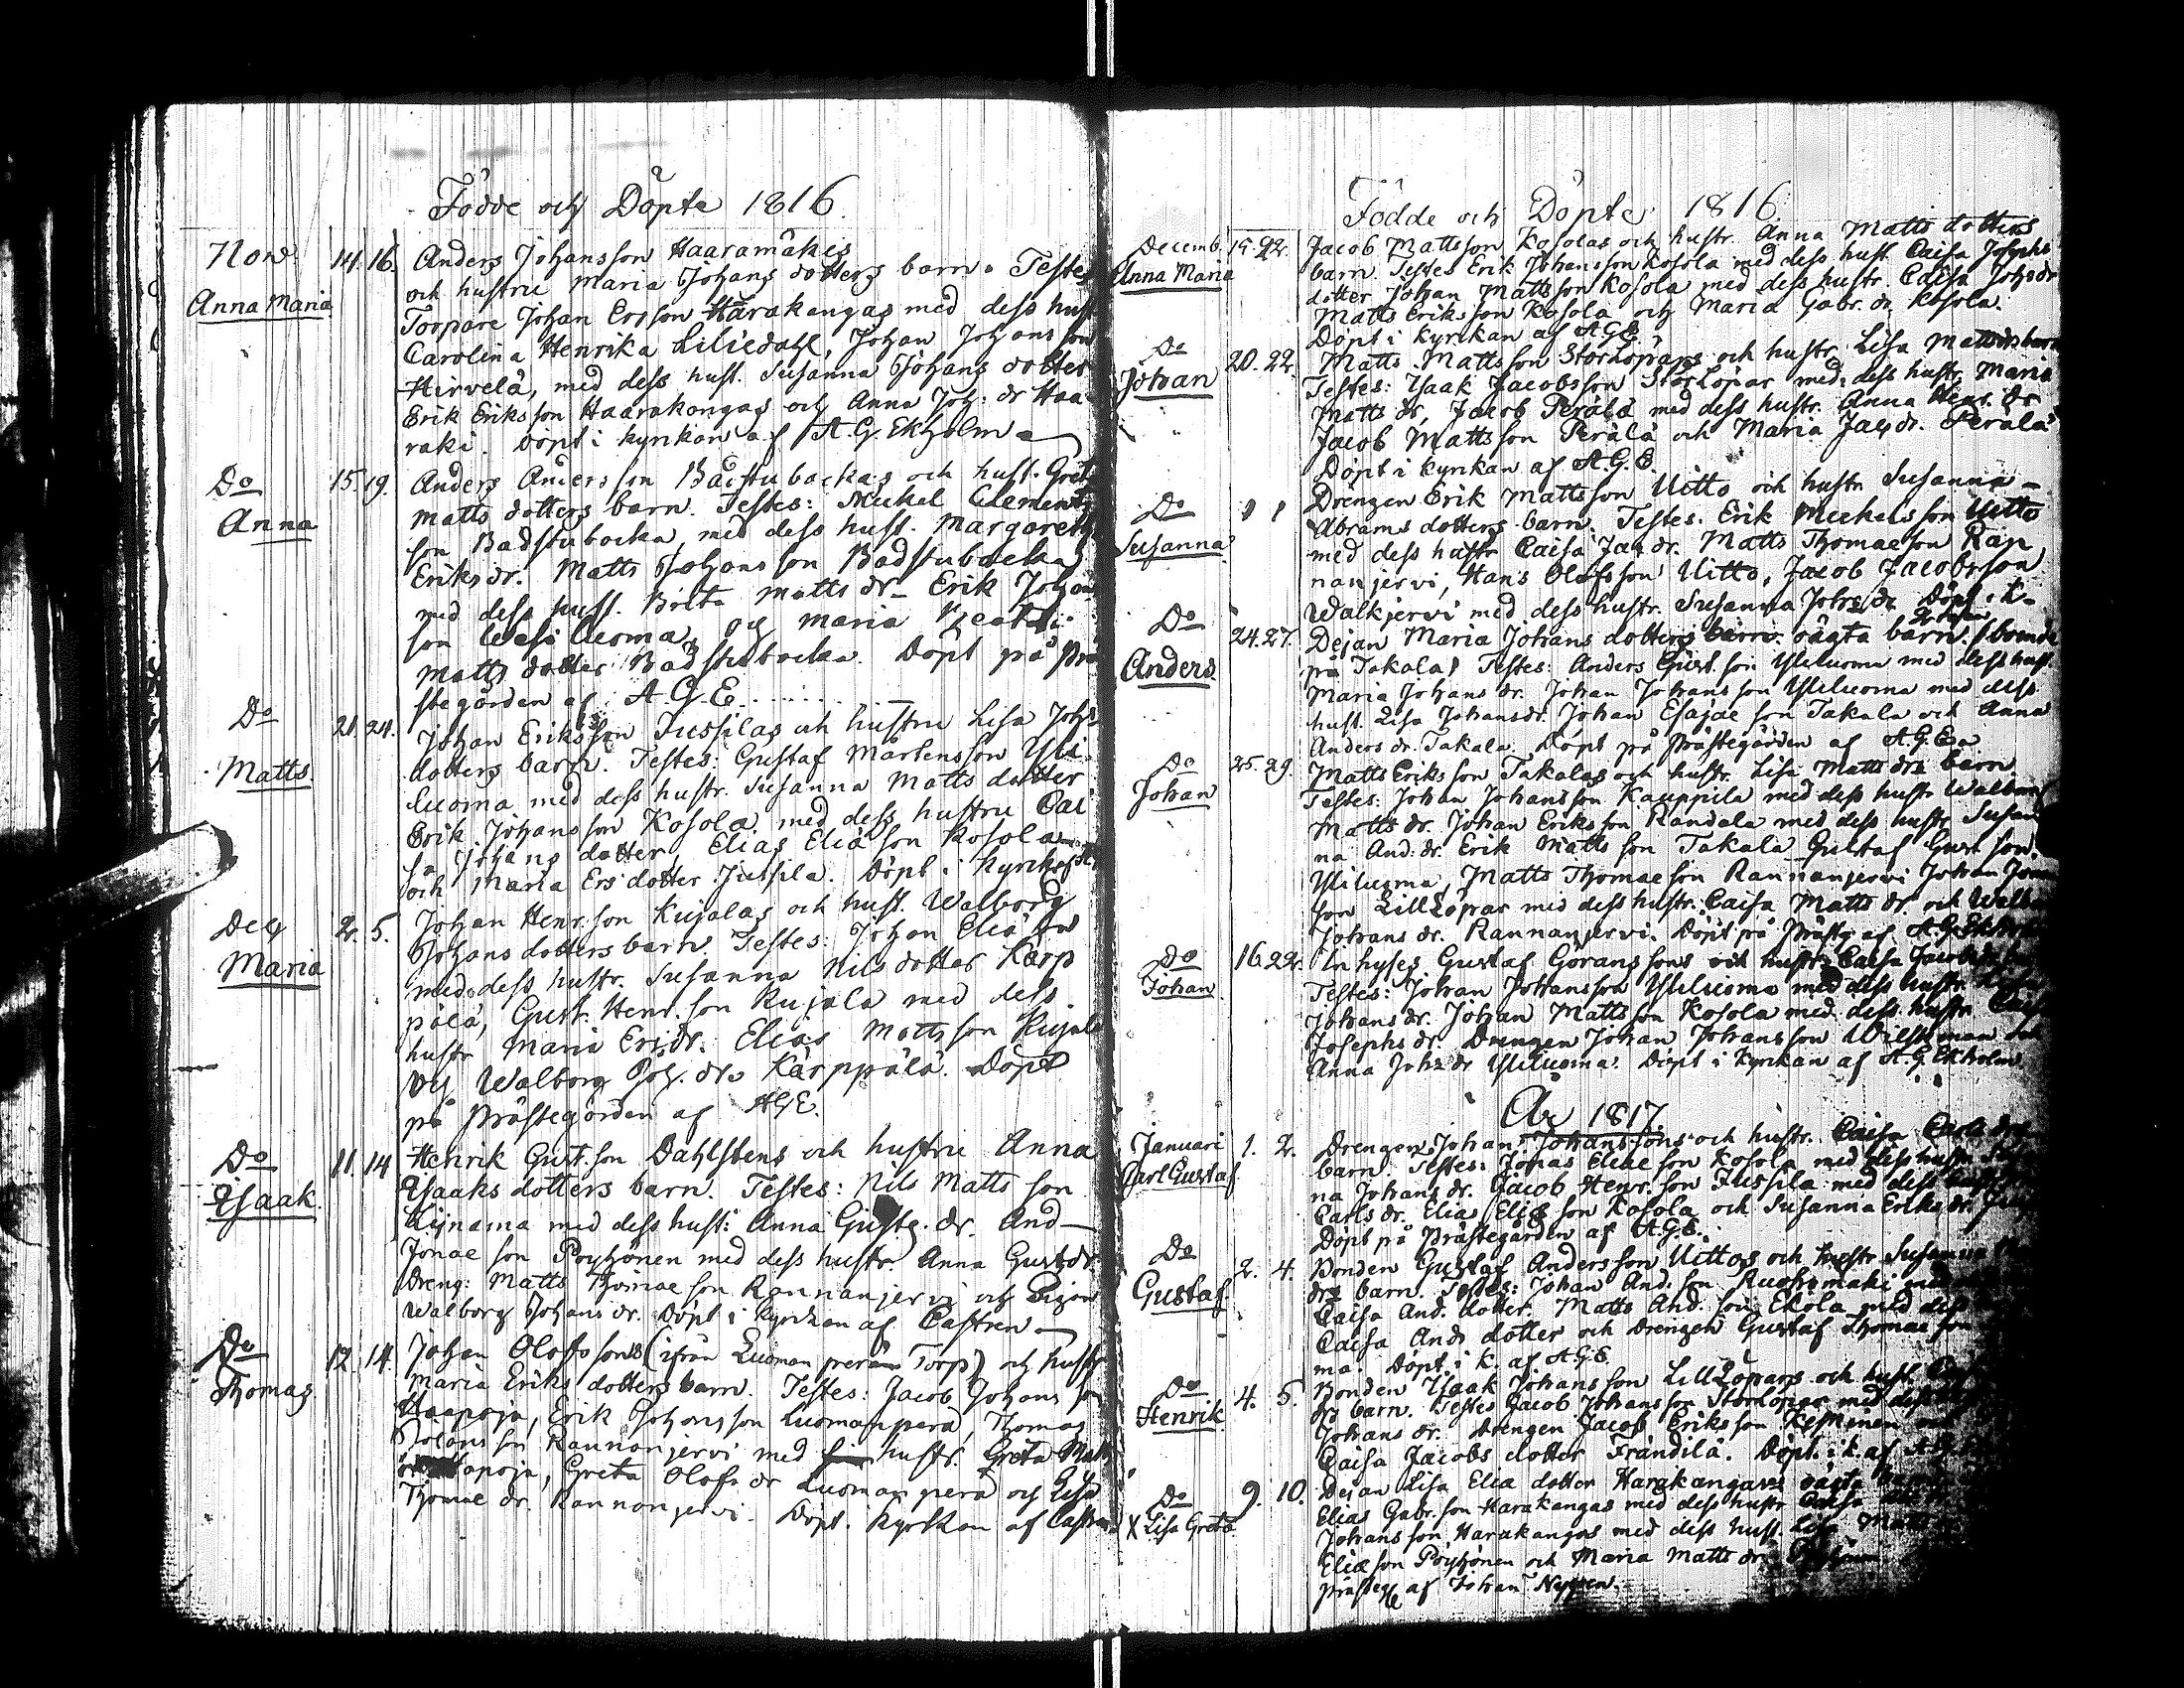 Födde och Döpte 1816
Nov 14. 16. Anders Johansson Haaramäkis
Anna Maria och hustru Maria Johans dotters barn. Testes
Torpare Johan Ersson Harakangas med dess hust
Carolina Henrika Liliedahl, Johan Johans son
Hirvelä, med dess hust. Susanna Johans dotter
Erik Eriksson Haarakangas och Anna Joh: dr Haa-
raki. Döpt i kyrkan af A. G. Ekholm
Do 15. 19. Anders Andersson Badstubackas och hust. Greta
Anna Matts dotters barn. Testes: Mickel Clements
son Badstubacka, med dess hust. Margareta
Eriks dr. Matts Johansson Badstubacka
med dess hust. Brita Matts dr. Erik Johans
son och Maria
Matts dotter Badstubacka. Döpt på Prä
stegården af A. G. E.
Do 21. 24. Johan Eriksson Jussilas och hustru Lisa Johs
Matts. dotters barn. Testes: Gustaf Mårtensson Yli
luoma med dess hustr. Susanna Matts dotter
Erik Johansson Kosola med dess hustru Cai
sa Johans dotter, Elias Eliä son Kosola
och Maria Ers dotter Jussila. Döpt i Kyrkan
Dec 2. 5. Johan Henr. son Kujalas och hust. Walborg
Maria Johans dotters barn. Testes: Johan Eliä son
med dess hustr. Susanna Nils dotter Kärp
pälä, Gust. Henr. son Kujala med dess
hustr Maria Ers dr. Elias Matts son Kujala
och Walborg Joh. dr. Kärppälä. Döpt
på Prästegården af AGE.
Do 11. 14 Henrik Gust. son Dahlstens och hustru Anna
Isaak. Isaaks dotters barn. Testes: Nils Matts son
Lijnama med dess hust: Anna Gust. dr. And
Jonae son Pöyhönen med dess hustr. Anna Gust dr
Dreng: Matts Thomae son Rannanjervi och Pigan
Walborg Johans dr. Döpt i kyrkan af Castren
Do 12. 14. Johan Olofssons (ifrån Luoman perän Torp) och hustr
Thomas. Maria Eriks dotters barn. Testes: Jacob Johans son
Haapoja, Erik Johansson Luomanperä, Thomas
son Rannanjervi med hustr. Greta Matts
apoja, Greta Olofs dr Luomanperä och Lisa
Thomae dr. Rannanjervi. Döpt i Kyrkan af Castren
Födde och Döpte 1816
Decemb. 19. 22. Jacob Mattsson Kosolas och hustr. Anna Matts dotters
Anna Maria barn. Testes Erik Johansson Kosola med dess hust. Caisa Josephs
dotter, Johan Mattsson Kosola med dess hustr. Caisa Johs dr
Matts Eriks son Kosola och Maria Gabr. dr Kosola.
Döpt i kyrkan af AGE.
Do 20. 22. Matts Mattsson Storlopars och hustr. Lisa Matts drs barn
Johan Testes: Isaak Jacobsson Storlopar med dess hustr. Maria
Matts dr, Jacob Perälä med dess hustr. Anna Henr. dr
Jacob Matts son Perälä och Maria Jac. dr. Perälä
Döpt i kyrkan af A.G.E.
Do Drengen Erik Mattsson Uitto och hustr Susanna
Susanna Abrams dotters barn. Testes. Erik Mickelsson Uitto
med dess hustr Caisa Jac dr. Matts Thomae son Ran
nanjervi, Hans Olofsson Uitto, Jacob Jacobsson
Walkjervi med dess hustr. Susanna Johs dr. Döpt i K.
Do 24. 27. Dejan Maria Johans dotters oägta barn (boende
Anders på Takala) Testes: Anders Gust. son Yliluoma med dess hust.
Maria Johans dr. Johan Johans son Yliluoma med dess
hust. Lisa Johansdr. Johan Esajae son Takala och Anna
Anders dr. Takala. Döpt på Prästegården af A.G.E.
Do 25. 29. Matts Eriksson Takalas och hustr. Lisa Matts drs barn
Johan Testes: Johan Johansson Kauppila med dess hustr Walborg
Matts dr. Johan Eriksson Randala med dess hustr Susan
na And: dr. Erik Matts son Takala Gustaf Gust son
Yliluoma, Matts Thomae son Rannanjervi Johan
son LillLopar med dess hustr. Caisa Matts dr. och Walb
Johans dr. Rannanjervi. Döpt på Prästg af A.G.
Do 16. 22. Inhyses Gustaf Göranssons och hustr. Caisa
Johan Testes: Johan Johansson Yliluoma med dess hustr.
Johans dr. Johan Mattsson Kosola med dess hustr
Josephs dr. Drengen Johan Johansson
Anna Johs dr Yliluoma. Döpt i Kyrkan af A.G. Ekholm.
År 1817.
Januari 1. 2. Drengen Johan Johanssons och hustr. Caisa Carls
Carl Gustaf barn. Testes: Jonas Eliae son Kosola med dess hustr
na Johans dr. Jacob Henr. son Jussila med dess
Carls dr. Elia Eliæ son Kosola och Susanna Eriks dr.
Döpt på Prästegården af A.G.E.
Do 2. 4. Bonden Gustaf Andersson Uittos och hustr Susanna
Gustaf drs barn. Testes: Johan And: son Ruohomäki med
Caisa And. dotter. Matts And. son Ekola med dess
Caisa Ands dotter och Drengen Gustaf Thomae son
ma. Döpt i k. af AGE.
Do 4. 5. Bonden Isaak Johans son LillLopars och hust.
Henrik drs barn. Testes Jacob Johansson Storlopar med dess
Johans dr. Drengen Jacob Eriksson Keskinen
Caisa Jacobs dotter Frändilä. Döpt i k. af
Do 9. 10. Dejan Lisa Elia dotter Harakangas oägta
X Lisa Greta Elias Gabr. son Harakangas med dess hustr Caisa
Johansson Harakangas med dess hust. Lisa
Eliæ son Pöyhönen och Maria Matts dr.
Prästeg af Johan Nyssen.